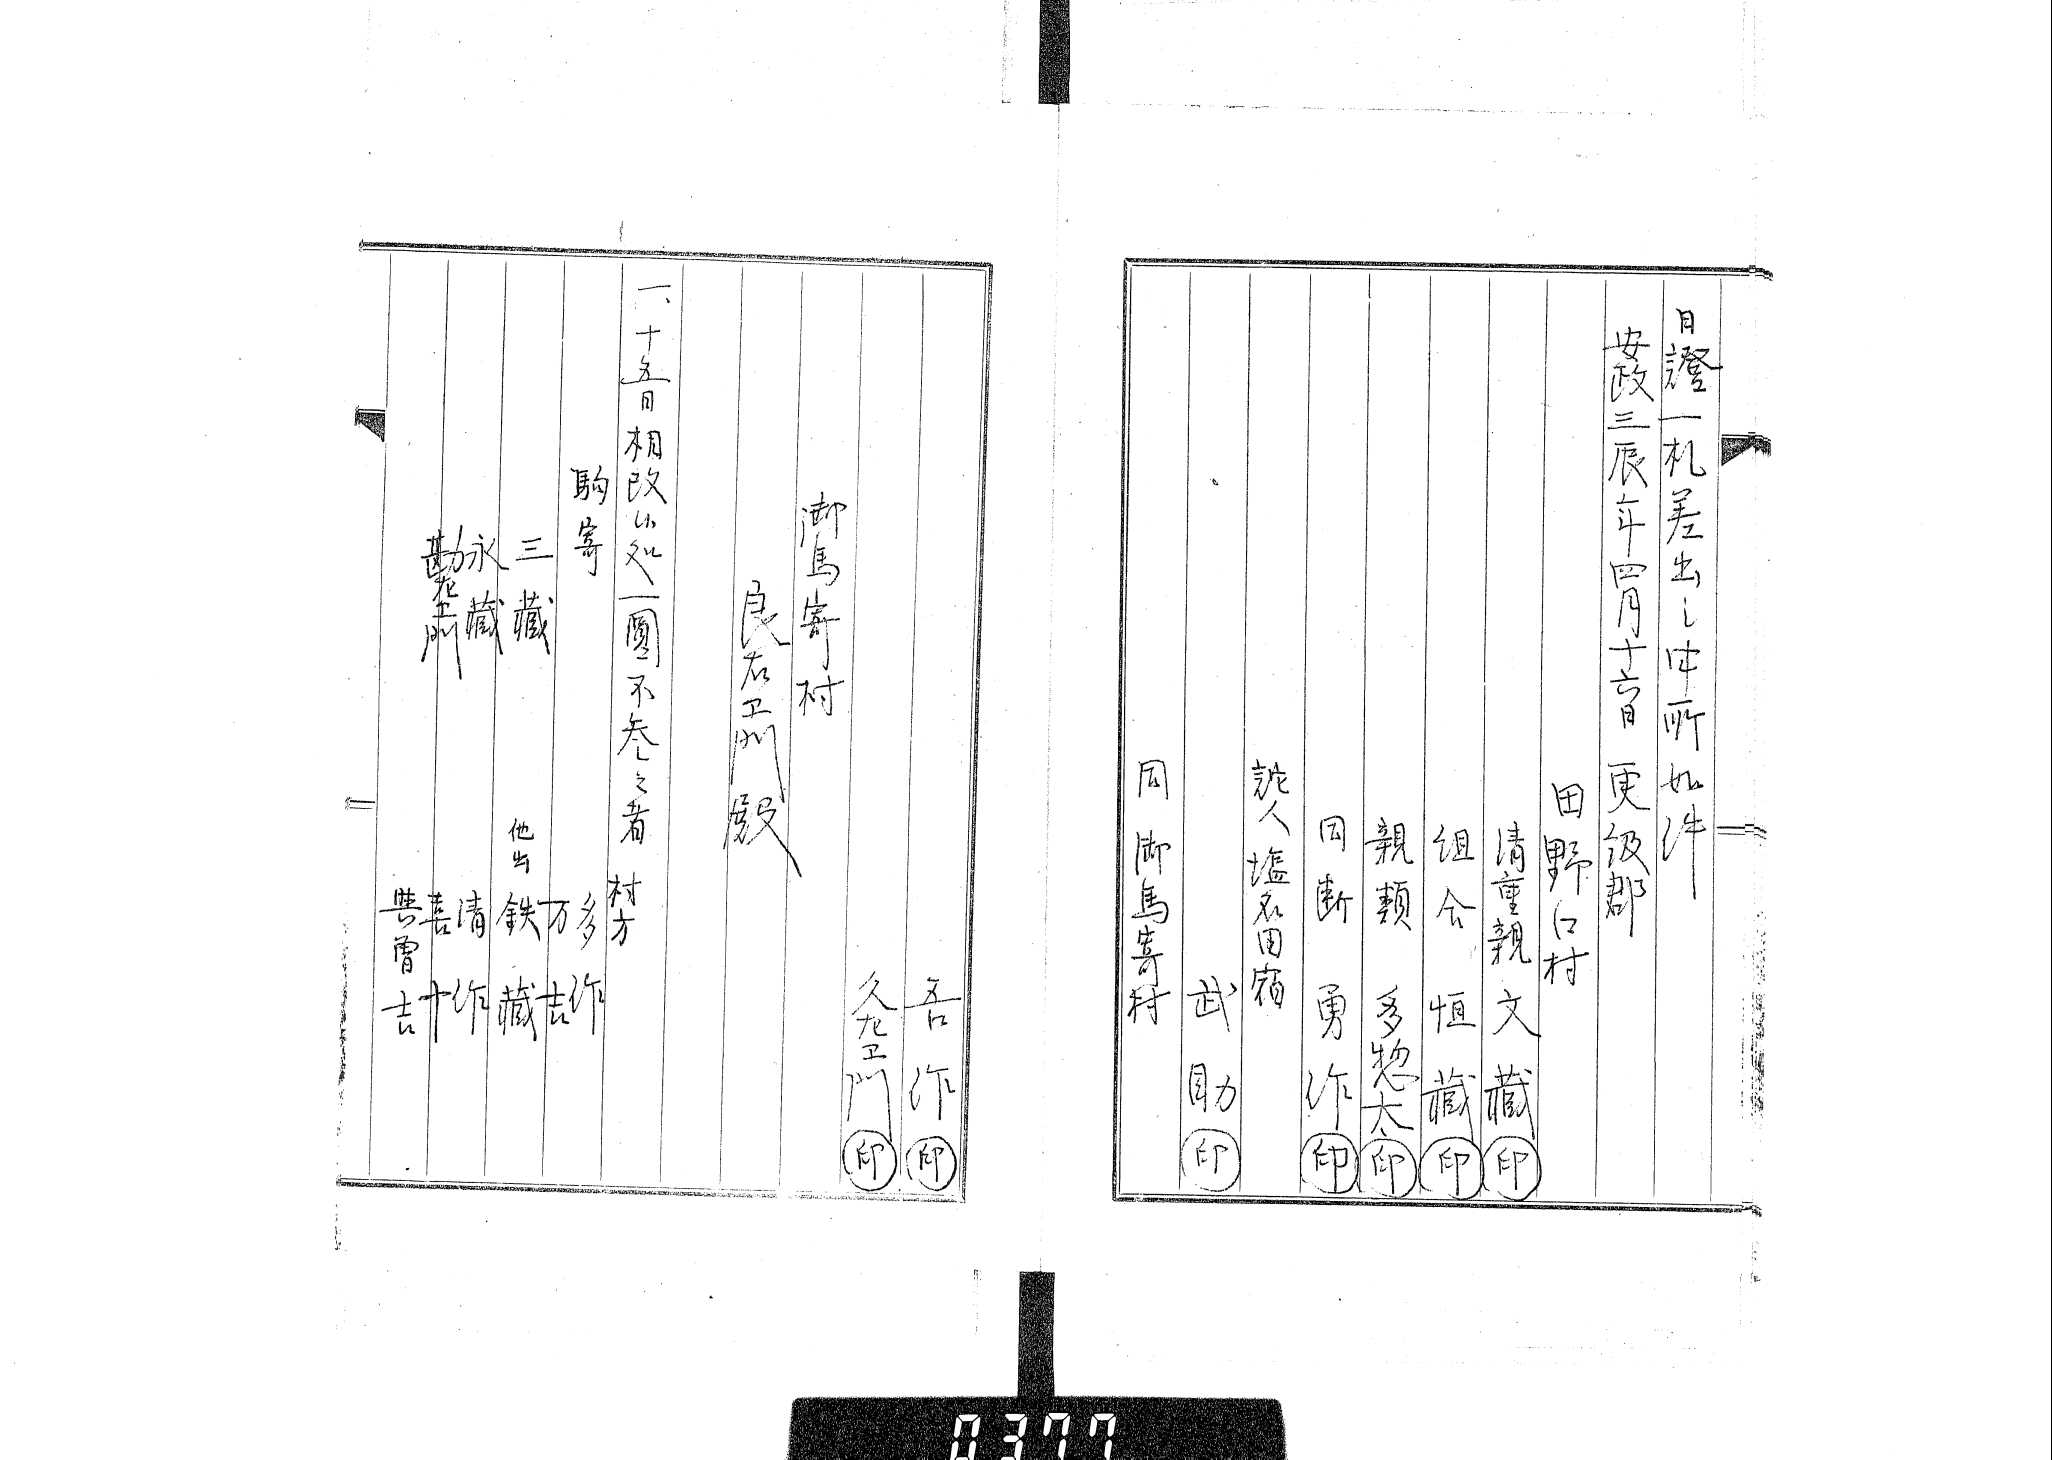 日證一札差出シ申所如件
安政三辰年四月十六日 更級郡
田野口村
清重親 文藏 印
組合 恒藏 印
親類 多惣太 印
同断 勇作 印
詫人 塩名田宿
武助 印
同 御馬寄村
吾作 印
久左卫門 印
御馬寄村
良右卫門殿
一、十五日相改候処一圓不参之者 村方
多作
駒寄
万吉
三藏
他出 鉄藏
永藏
清作
勘左卫門
喜十
與曽吉
0377